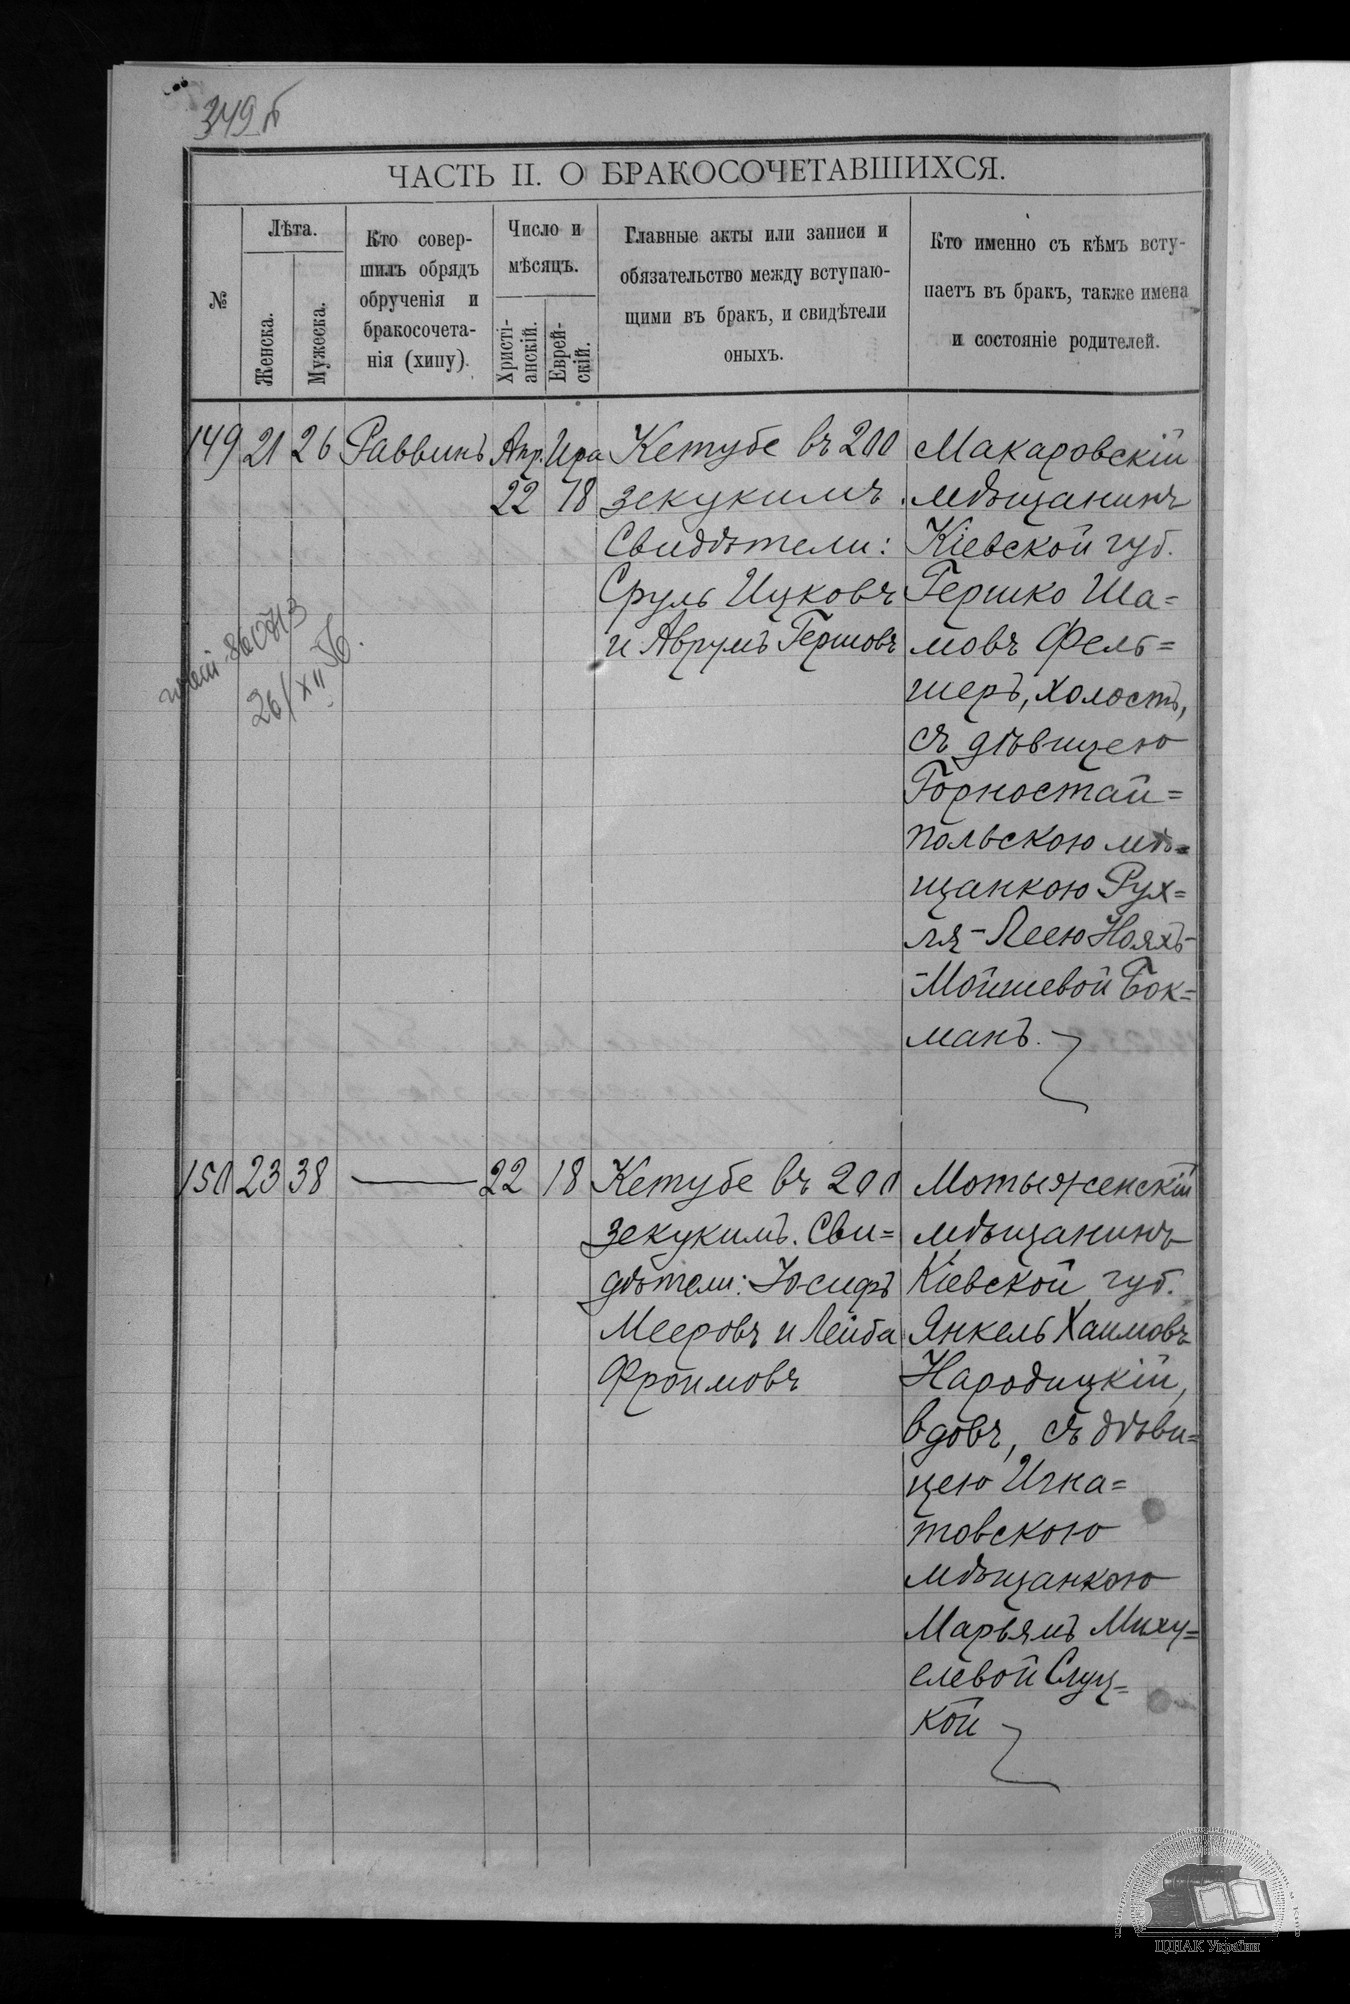 349 б
ЧАСТЬ II. О БРАКОСОЧЕТАВШИХСЯ.
№
Лѣта.
Женска.
Мужеска.
Кто совер-
шилъ обрядъ
обрученія и
бракосочета-
нія (хипу).
Число и
мѣсяцъ.
Христі-
анскій.
Еврей-
скій.
Главные акты или записи и
обязательство между вступаю-
щими въ бракъ, и свидѣтели
оныхъ.
Кто именно съ кѣмъ всту-
паетъ въ бракъ, также имена
и состояніе родителей.
149 21 26 Раввинъ Апр. Ира
22 18
Кетубе въ 200
зекукимъ.
Свидѣтели:
Сруль Ицковъ
и Аврумъ Гершовъ
Макаровскій
мѣщанинъ
Кіевской губ.
Гершко Ша=
мовъ Фель=
шеръ, холостъ,
съ дѣвицею
Горностай=
польскою мѣ=
щанкою Рух=
ля-Леею Нояхъ-
-Мошшевой Бок=
манъ.
86073
26/XII 56.
150 23 38 — 22 18
Кетубе въ 200
зекукимъ. Сви=
дѣтели: Іосифъ
Мееровъ и Лейба
Фроимовъ
Мотыженскій
мѣщанинъ
Кіевской губ.
Янкель Хаимовъ
Народицкій,
вдовъ, съ дѣви=
цею Игна=
товскою
мѣщанкою
Марьямъ Миху=
елевой Слуц=
кой
ЦДІАК України